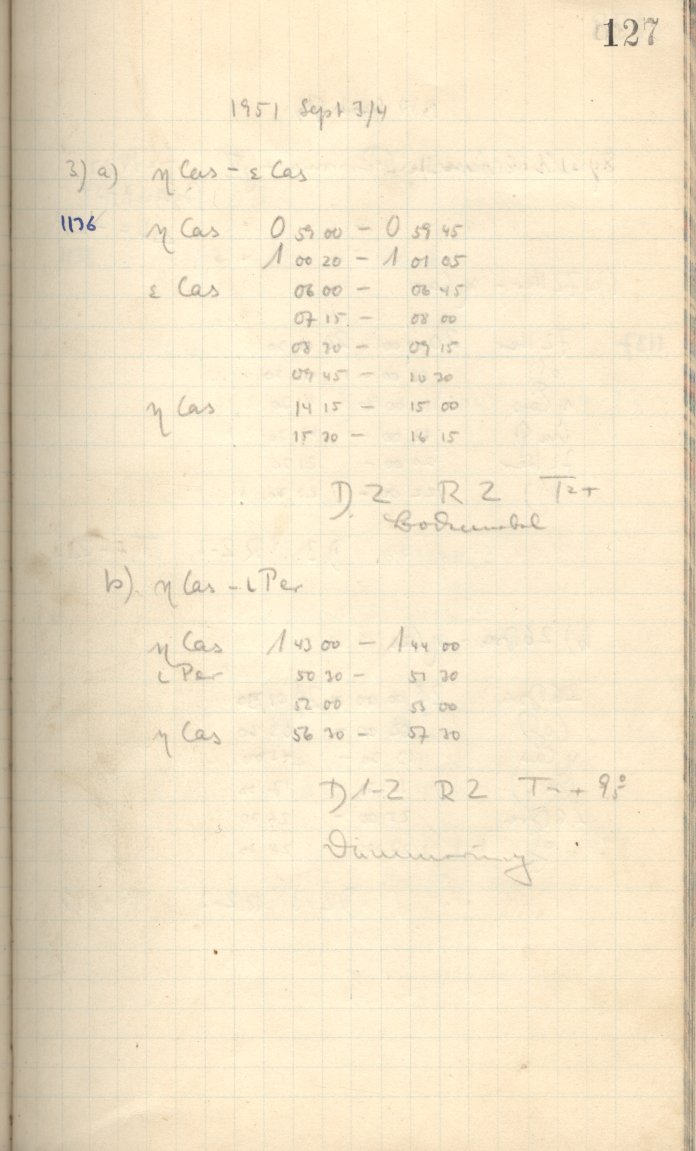 127
1951 Sept 3/4
3) a) η Cas - ε Cas
1136 η Cas 0 59 00 - 0 59 45
1 00 20 - 1 01 05
ε Cas 06 00 - 06 45
07 15 - 08 00
08 30 - 09 15
09 45 - 10 30
η Cas 14 15 - 15 00
15 30 - 16 15
D 2 R 2 T
Bodennebel
b) η Cas - ι Per
η Cas 1 43 00 - 1 44 00
ι Per 50 30 - 51 30
52 00 53 00
η Cas 56 30 - 57 30
D 1-2 R 2 T + 9.5°
Dämmerung